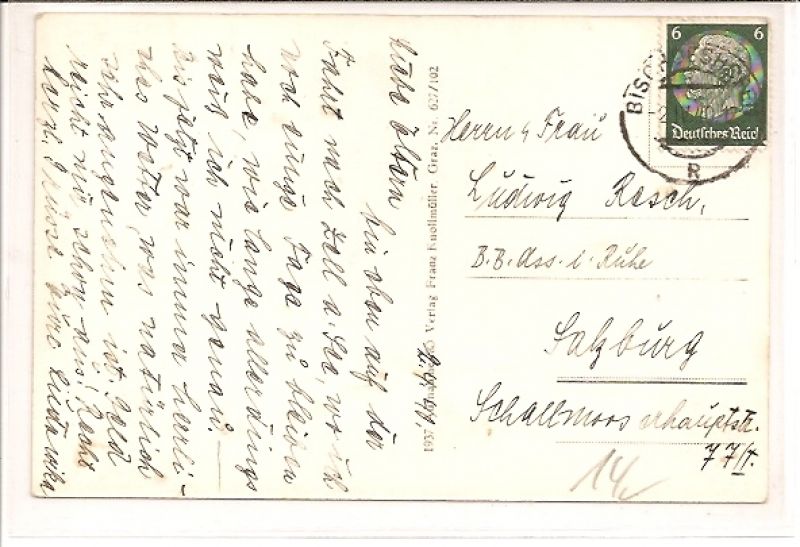 Liebe Eltern
bin eben auf der
Fahrt nach Zell a. See, wo ich
noch einige Tage zu bleiben
habe, wie lange allerdings
weiß ich nicht genau. —
Bis jetzt war immer herrli-
ches Wetter, was natürlich
sehr angenehm ist. Geld
reicht mir schon aus! Recht
herzl. Grüsse Eure
1937
Verlag Franz Knollmüller, Graz. Nr. 627/102
6 6
Deutsches Reich
Herrn u Frau
Ludwig Resch,
B. B. Ass. i. Ruhe
Salzburg
Schallmooserhauptstr.
77/I.
14/